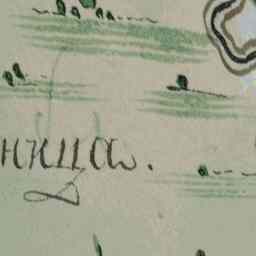 ница.